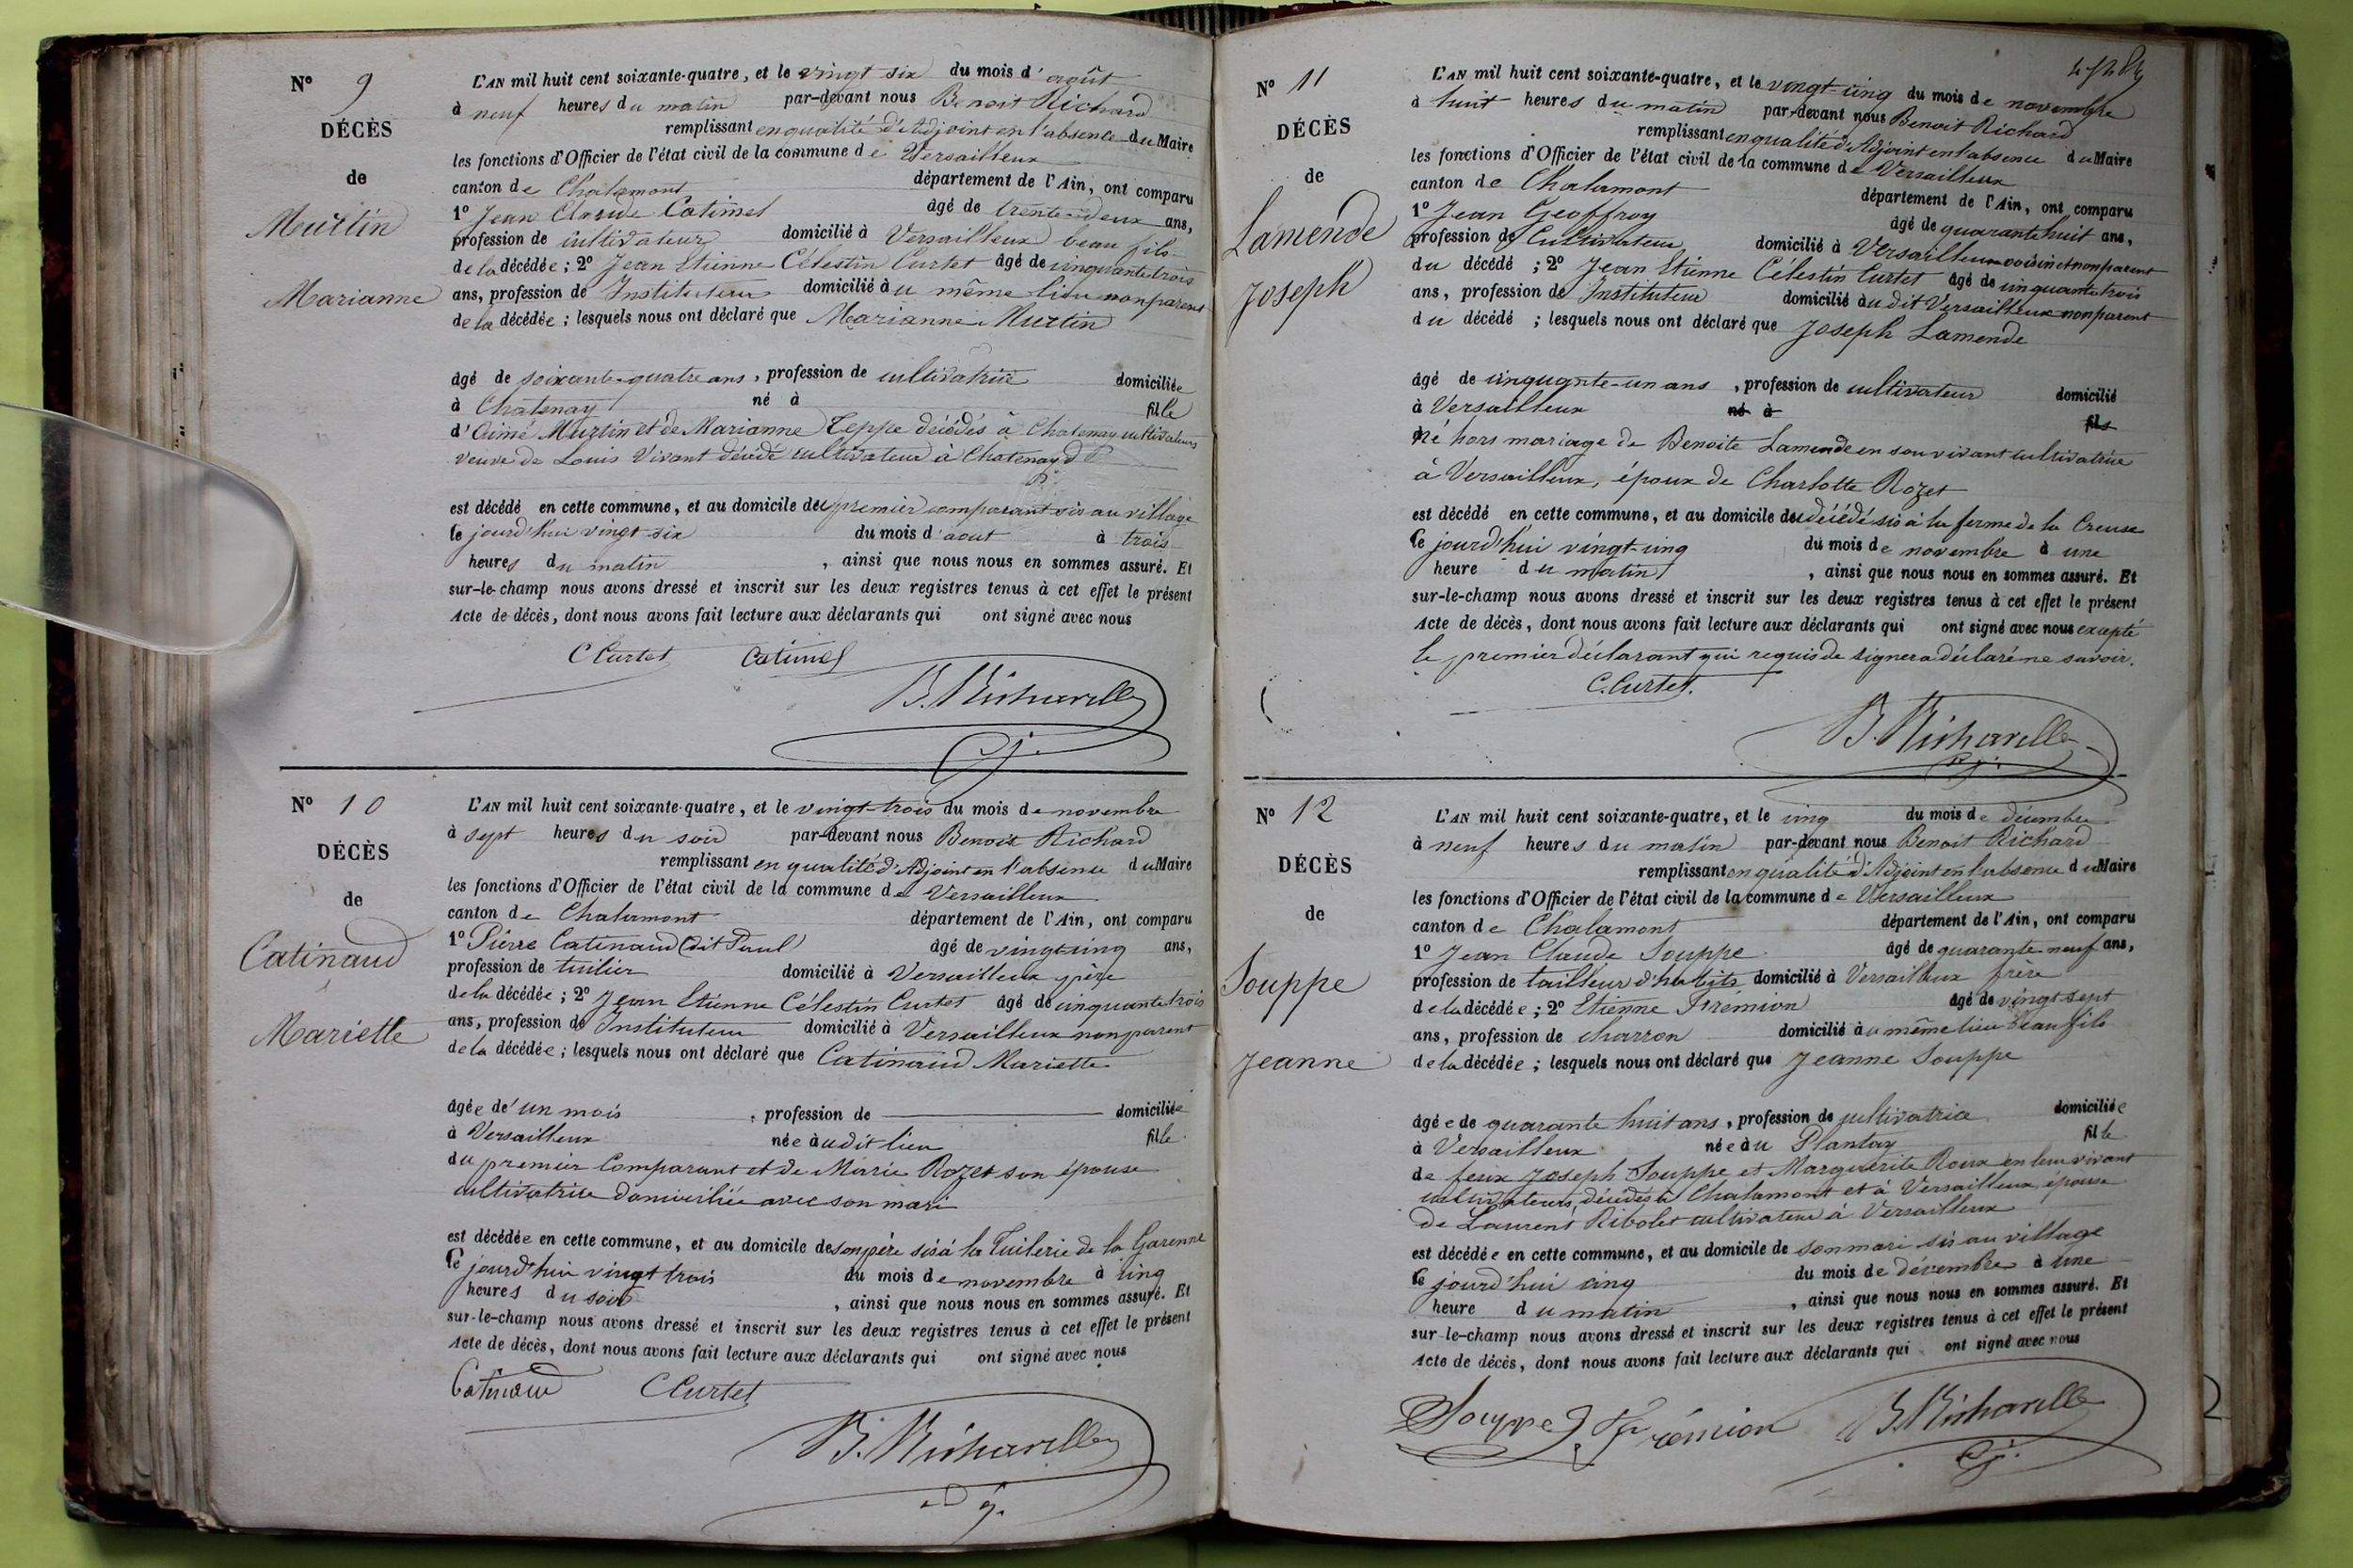 N° 9
DÉCÈS
de
Murtin
Marianne
L'AN mil huit cent soixante-quatre, et le vingt six du mois d'août
à neuf heures du matin par-devant nous Benoit Richard
remplissant en qualité d'Adjoint en l'absence du Maire
les fonctions d'Officier de l'état civil de la commune de Versailleux
canton de Chalamont département de l'Ain, ont comparu
1° Jean Claude Catimel âgé de trente-deux ans,
profession de cultivateur domicilié à Versailleux beau fils
de la décédée ; 2° Jean Etienne Célestin Curtet âgé de cinquante trois
ans, profession de Instituteur domicilié au même lieu non parent
de la décédée ; lesquels nous ont déclaré que Marianne Murtin
âgé de soixante-quatre ans, profession de cultivatrice domiciliée
à Châtenay né à fille
d'Aimé Murtin et de Marianne Teppe décédés à Chatenay cultivateurs
veuve de Louis Vivant décédé cultivateur à Chatenay
est décédé en cette commune, et au domicile du premier comparant sis au village
Ce jourd'hui vingt-six du mois d'aout à trois
heures du matin , ainsi que nous nous en sommes assuré. Et
sur-le-champ nous avons dressé et inscrit sur les deux registres tenus à cet effet le présent
Acte de décès, dont nous avons fait lecture aux déclarants qui ont signé avec nous
C Curtet Catimel
B. Richard
N° 10
DÉCÈS
de
Catinaud
Mariette
L'AN mil huit cent soixante-quatre, et le vingt-trois du mois de novembre
à sept heures du soir par-devant nous Benoit Richard
remplissant en qualité d'Adjoint en l'absence du Maire
les fonctions d'Officier de l'état civil de la commune de Versailleux
canton de Chalamont département de l'Ain, ont comparu
1° Pierre Catinaud (dit Paul) âgé de vingt-cinq ans,
profession de tuilier domicilié à Versailleux père
de la décédée ; 2° Jean Etienne Célestin Curtet âgé de cinquante trois
ans, profession de Instituteur domicilié à Versailleux non parent
de la décédée ; lesquels nous ont déclaré que Catinaud Mariette
âgée de un mois , profession de domiciliée
à Versailleux née audit lieu fille
du premier Comparant et de Marie Rozet son épouse
cultivatrice domiciliée avec son mari
est décédée en cette commune, et au domicile de son père sis à la Tuilerie de la Garenne
Ce jourd'hui vingt trois du mois de novembre à cinq
heures du soir , ainsi que nous nous en sommes assuré. Et
sur-le-champ nous avons dressé et inscrit sur les deux registres tenus à cet effet le présent
Acte de décès, dont nous avons fait lecture aux déclarants qui ont signé avec nous
Catinaud C Curtet
B. Richard
N° 11
DÉCÈS
de
Lamende
Joseph
L'AN mil huit cent soixante-quatre, et le vingt-cinq du mois de novembre
à huit heures du matin par-devant nous Benoit Richard
remplissant en qualité d'Adjoint en l'absence du Maire
les fonctions d'Officier de l'état civil de la commune de Versailleux
canton de Chalamont département de l'Ain, ont comparu
1° Jean Geoffroy âgé de quarante huit ans,
profession de Cultivateur domicilié à Versailleux voisin et non parent
du décédé ; 2° Jean Etienne Célestin Curtet âgé de cinquante trois
ans, profession de Instituteur domicilié au dit Versailleux non parent
du décédé ; lesquels nous ont déclaré que Joseph Lamende
âgé de cinquante-un ans , profession de cultivateur domicilié
à Versailleux né à fils
Né hors mariage de Benoite Lamende en son vivant cultivatrice
à Versailleux, époux de Charlotte Rozet
est décédé en cette commune, et au domicile du décédé sis à la ferme de la Creuse
Ce jourd'hui vingt-cinq du mois de novembre à une
heure du matin , ainsi que nous nous en sommes assuré. Et
sur-le-champ nous avons dressé et inscrit sur les deux registres tenus à cet effet le présent
Acte de décès, dont nous avons fait lecture aux déclarants qui ont signé avec nous excepté
le premier déclarant qui requis de signer a déclaré ne savoir.
C. Curtet.
B. Richard
N° 12
DÉCÈS
de
Souppe
Jeanne
L'AN mil huit cent soixante-quatre, et le cinq du mois de décembre
à neuf heures du matin par-devant nous Benoit Richard
remplissant en qualité d'Adjoint en l'absence du Maire
les fonctions d'Officier de l'état civil de la commune de Versailleux
canton de Chalamont département de l'Ain, ont comparu
1° Jean Claude Souppe âgé de quarante neuf ans,
profession de tailleur d'habits domicilié à Versailleux frère
de la décédée ; 2° Etienne Fremion âgé de vingt sept
ans, profession de charron domicilié au même lieu beau fils
de la décédée ; lesquels nous ont déclaré que Jeanne Souppe
âgée de quarante huit ans, profession de cultivatrice domiciliée
à Versailleux née au Plantay fille
de feux Joseph Souppe et Marguerite Roux en leur vivant
cultivateurs, décédés à Chalamont et à Versailleux, épouse
de Laurent Ribolet cultivateur à Versailleux
est décédée en cette commune, et au domicile de son mari sis au village
Ce jourd'hui cinq du mois de décembre à une
heure du matin , ainsi que nous nous en sommes assuré. Et
sur-le-champ nous avons dressé et inscrit sur les deux registres tenus à cet effet le présent
Acte de décès, dont nous avons fait lecture aux déclarants qui ont signé avec nous
Souppe Frémion B. Richard